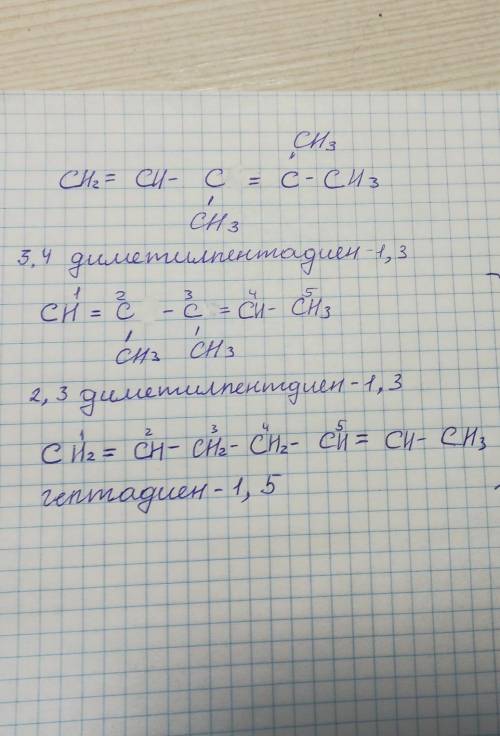 CH3
CH2 = CH - C = C - CH3
CH3
3,4 диметилпентадиен-1,3
1 2 3 4 5
CH = C - C = CH - CH3
CH3 CH3
2,3 диметилпентдиен-1,3
1 2 3 4 5
CH2 = CH - CH2 - CH2 - CH = CH - CH3
гептадиен-1,5